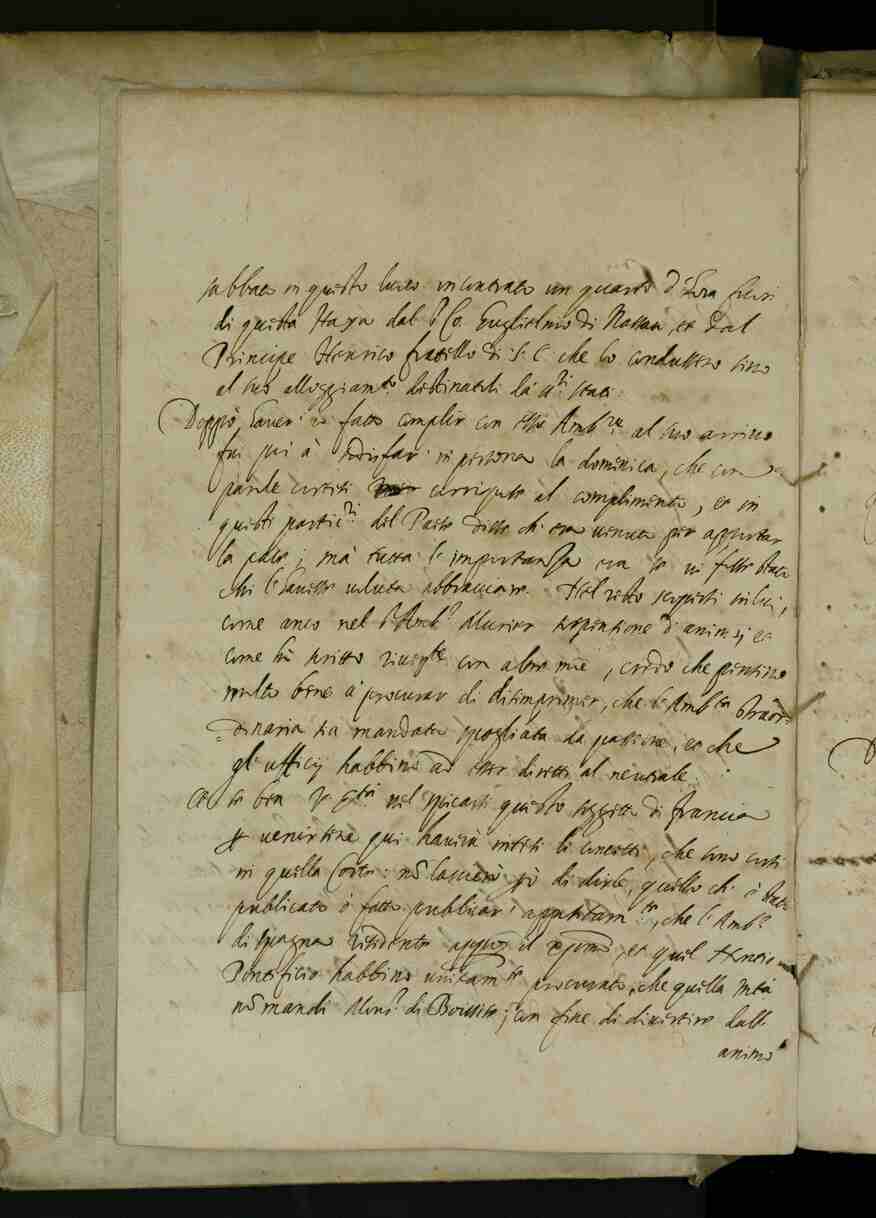 sabbato in questo luoco incontrato un quarto d'hora fuori
di questa Haya dal S.r Co. Guglielmo di Nassau, et dal
Principe Henrico fratello di S. E. che lo condussero sino
al suo alloggiam.to destinatoli da q.ti Stati.
Doppò haver io fatto complir con esso Amb.re al suo arrivo
fui poi à sodisfar in persona la dominica, che con
parole cortesi corrispose al complimento, et in
questi partic.ri del Paese disse ch'era venuto per apportar
la pace; mà tutta l'importanza era se vi fosse stato
chi l'havesse voluta abbracciare. Nel resto scopersi in lui,
come anco nel S.r Amb.r Murier dispositione d'animo; et
come hò scritto riveren.te con altre mie, credo che
molto bene à procurar di disimprimer, che l'Amb.ta straor-
dinaria sia mandata spogliata da passione, et che
gl'ufficij habbino ad esser diretti al neutrale.
Et se ben V. S.tà nel spiccarsi questo soggetto di Francia
per venirsene qui haverà intesi li concetti, che sono corsi
in quella Corte: nò lascierò però di dirle, quello ch'è stato
publicato ò fatto publicar appostatam.te, che l'Amb.r
di Spagna residente appresso il , et quel Noncio
Pontificio habbino unitam.te procurato, che quella M.tà
nò mandi Mons.r di Boissise; con fine di divertire dall'
animo